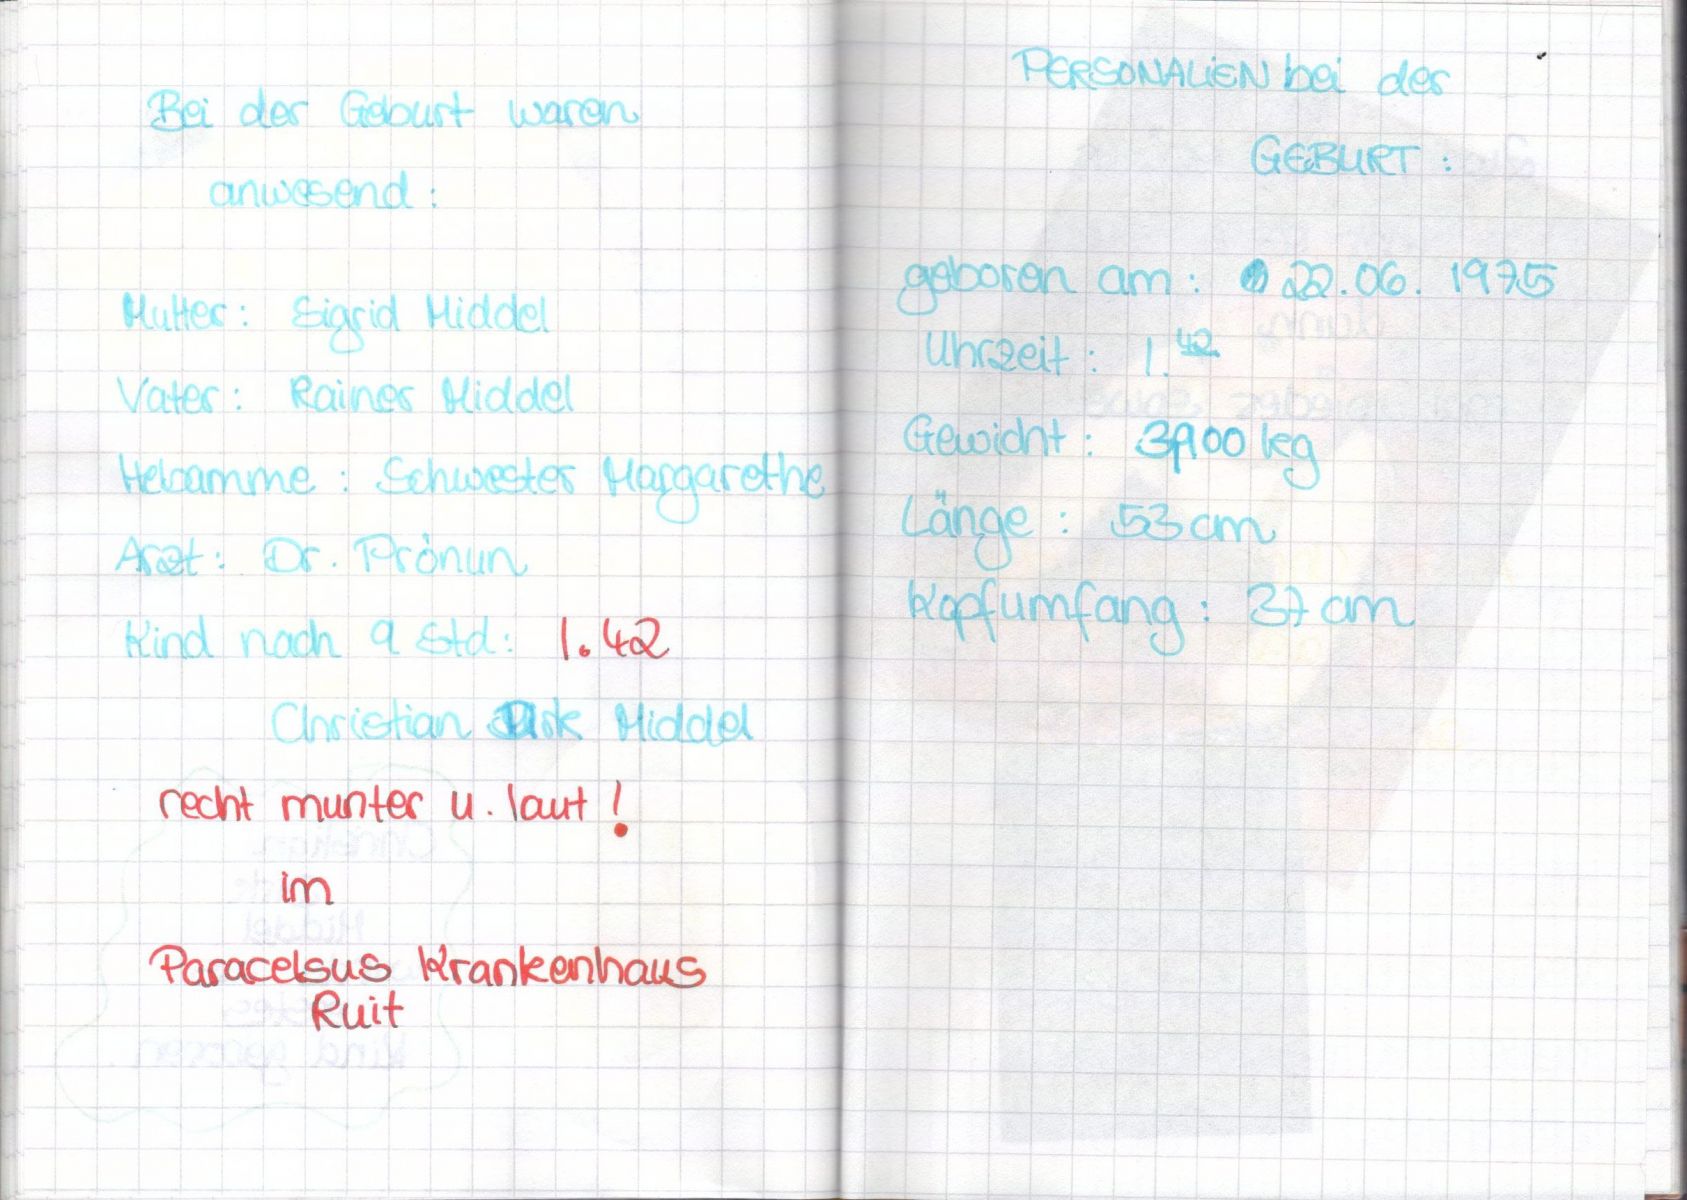 Bei der Geburt waren
anwesend:
Mutter: Sigrid Middel
Vater: Rainer Middel
Hebamme: Schwester Margarethe
Arzt: Dr. Prönun
Kind nach 9 Std: 1.42
Christian Middel
recht munter u. laut!
im
Paracelsus Krankenhaus
Ruit
PERSONALIEN bei der
GEBURT:
geboren am: 22.06.1975
Uhrzeit: 1.42
Gewicht: kg
Länge: 53 cm
Kopfumfang: 37 cm